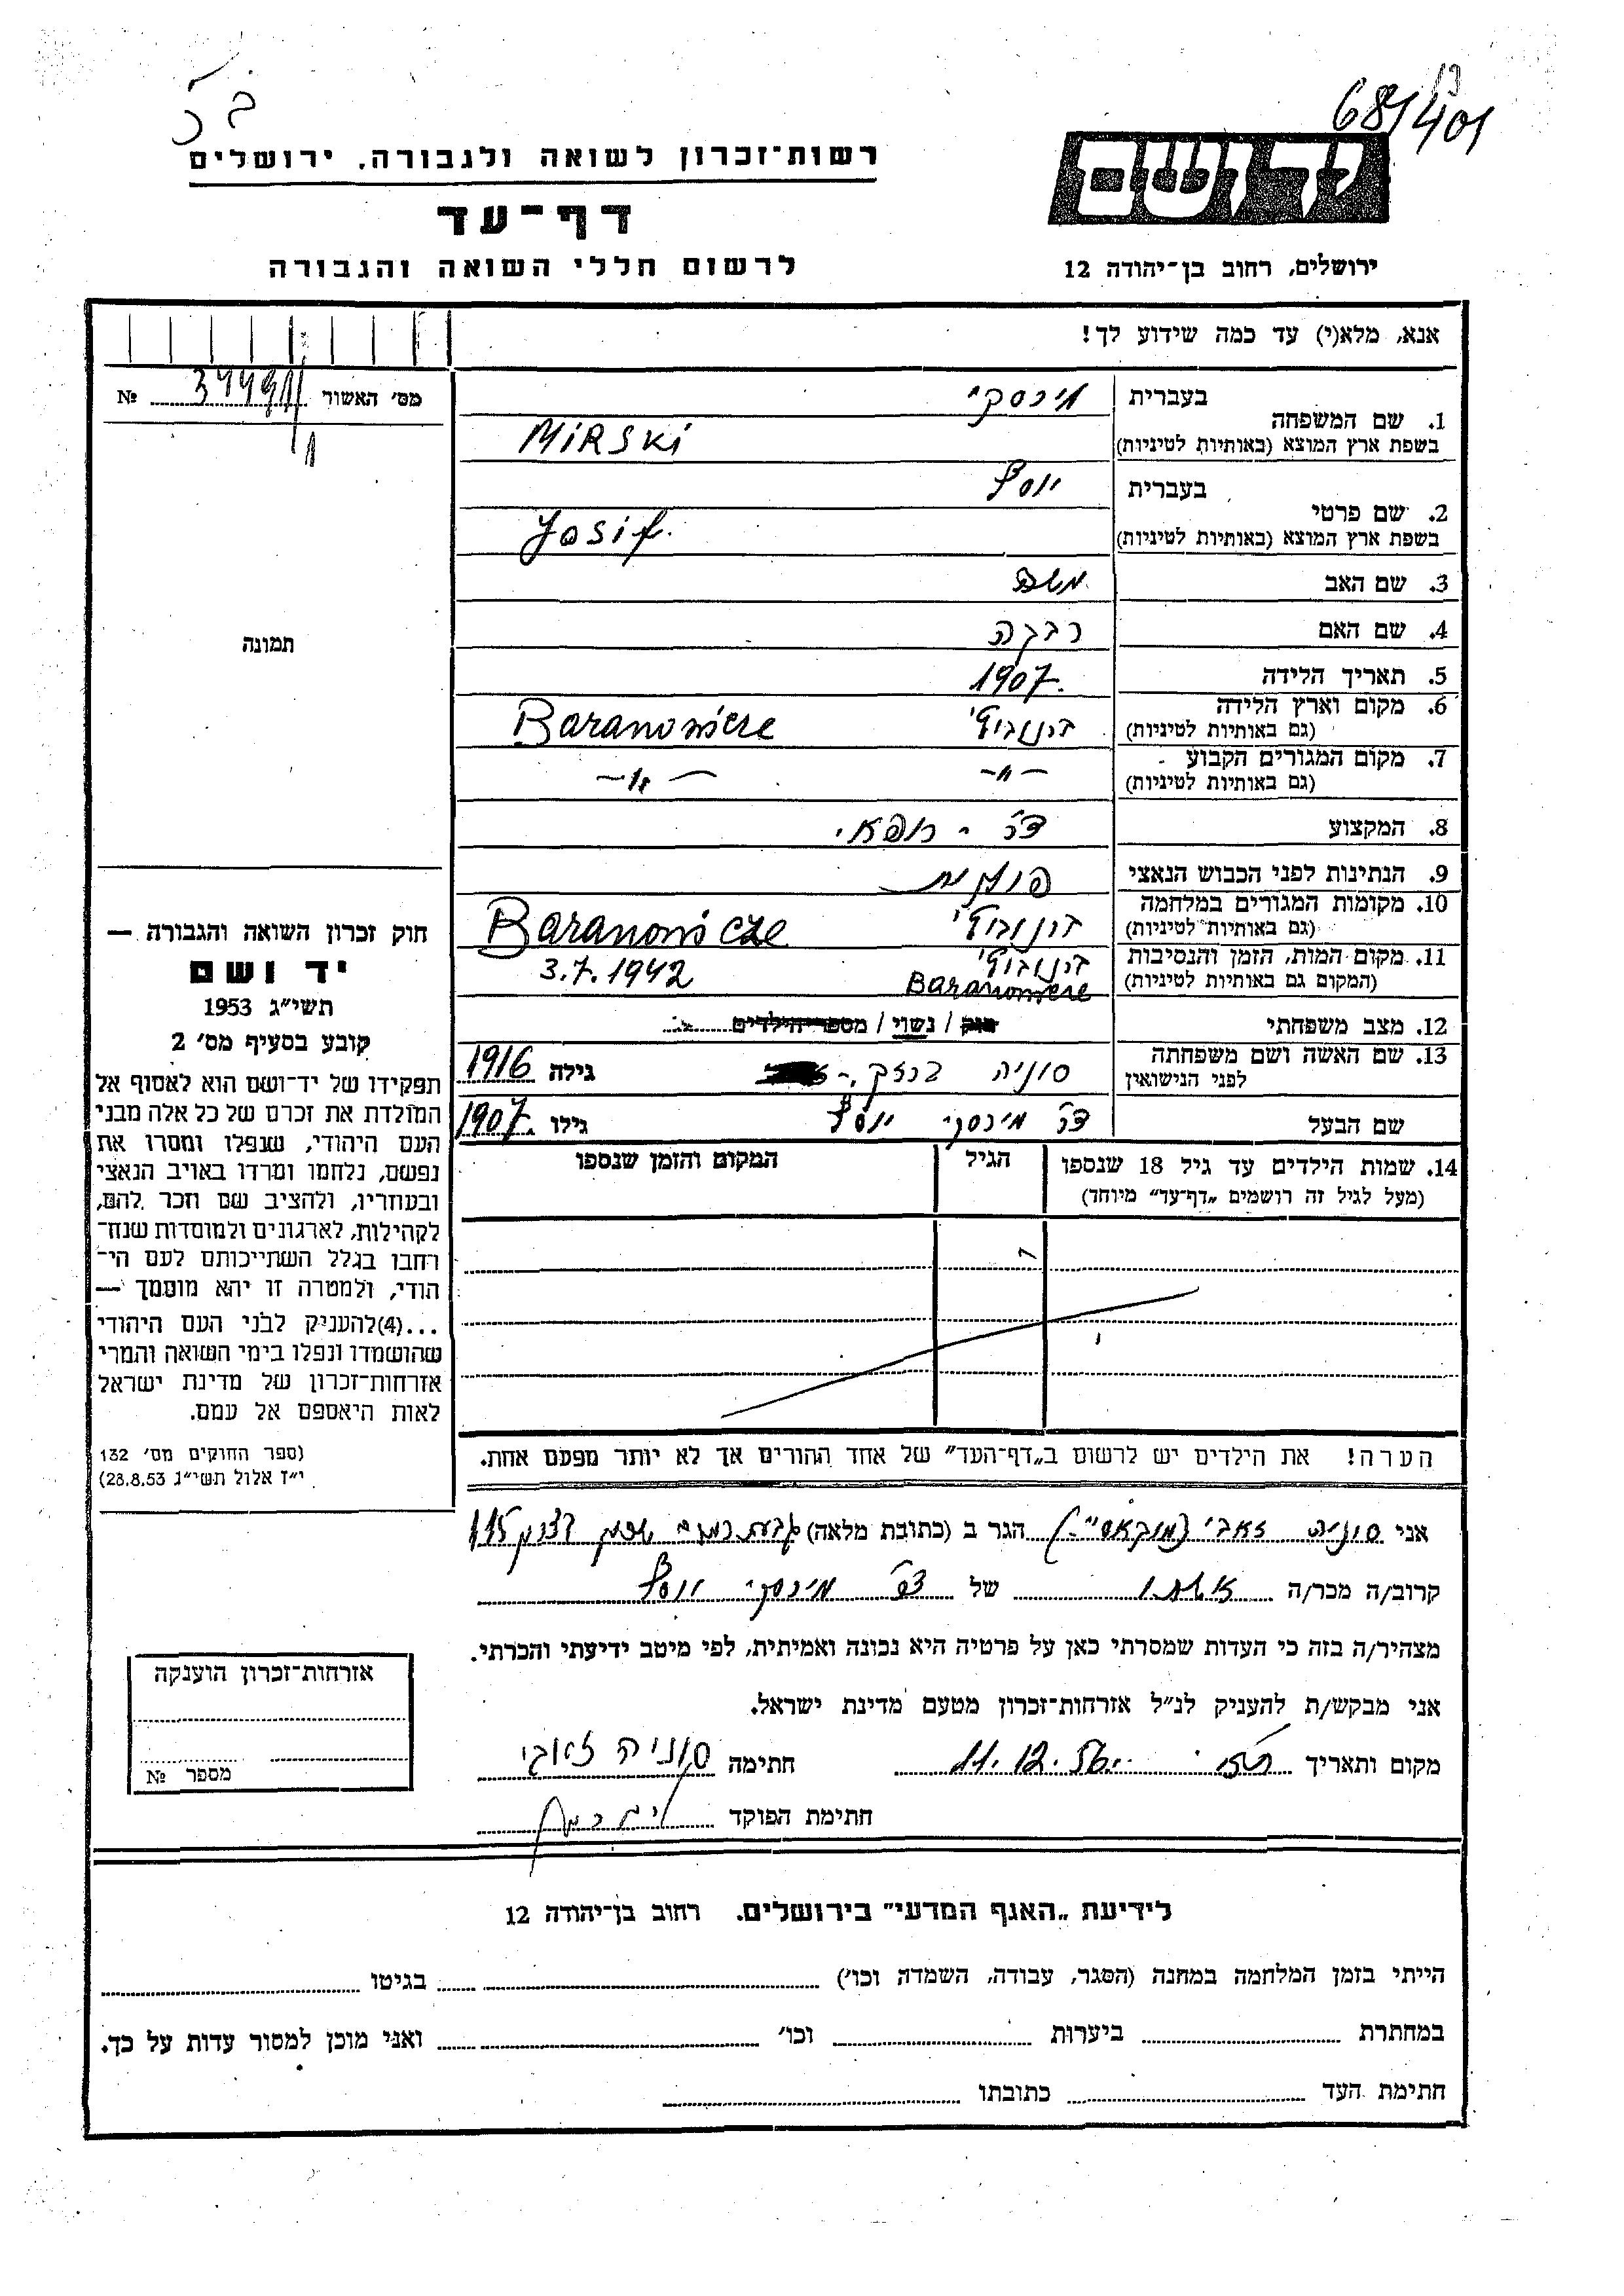 681/401
ב כ
ידושם
רשות־זכרון לשואה ולגבורה. ירושלים
דף־עד
ירושלים, רחוב בן־יהודה 12
לרשום חללי השואה והגבורה
אנא, מלא(י) עד כמה שידוע לך!
מס׳ האשור № 
1. שם המשפחה בעברית מירסקי
בשפת ארץ המוצא (באותיות לטיניות) MiRSKi
2. שם פרטי בעברית יוסף
בשפת ארץ המוצא (באותיות לטיניות) Josif.
3. שם האב משה
4. שם האם רבקה
5. תאריך הלידה 1907.
6. מקום וארץ הלידה
(גם באותיות לטיניות) Baranowicze
7. מקום המגורים הקבוע
(גם באותיות לטיניות) –"– –"–
8. המקצוע ד״ר - רופא
9. הנתינות לפני הכבוש הנאצי פולנית
10. מקומות המגורים במלחמה
(גם באותיות לטיניות) Baranowicze
11. מקום המות, הזמן והנסיבות 3.7.1942
(המקום גם באותיות לטיניות) Baranowicze
12. מצב משפחתי רווק / נשוי / מספר הילדים
13. שם האשה ושם משפחתה
לפני הנישואין סוניה גילה 1916
שם הבעל ד״ר מירסקי יוסף גילו 1907.
14. שמות הילדים עד גיל 18 שנספו הגיל המקום והזמן שנספו
(מעל לגיל זה רושמים „דף־עד” מיוחד)
הערה! את הילדים יש לרשום ב„דף־העד” של אחד ההורים אך לא יותר מפעם אחת.
תמונה
חוק זכרון השואה והגבורה —
יד ושם
תשי״ג 1953
קובע בסעיף מס׳ 2
תפקידו של יד־ושם הוא לאסוף אל
המולדת את זכרם של כל אלה מבני
העם היהודי, שנפלו ומסרו את
נפשם, נלחמו ומרדו באויב הנאצי
ובעוזריו, ולהציב שם וזכר להם,
לקהילות, לארגונים ולמוסדות שנח־
רבו בגלל השתייכותם לעם הי־
הודי, ולמטרה זו יהא מוסמך —
...(4)להעניק לבני העם היהודי
שהושמדו ונפלו בימי השואה והמרי
אזרחות־זכרון של מדינת ישראל
לאות היאספם אל עמם.
(ספר החוקים מס׳ 132
י״ז אלול תשי״ג 28.8.53)
אני סוניה זאבי הגר ב (כתובת מלאה) גבעת רמב״ם
קרוב/ה מכר/ה אשתו של ד״ר מירסקי יוסף
מצהיר/ה בזה כי העדות שמסרתי כאן על פרטיה היא נכונה ואמיתית, לפי מיטב ידיעתי והכרתי.
אני מבקש/ת להעניק לנ״ל אזרחות־זכרון מטעם מדינת ישראל.
מקום ותאריך 11.12.56. חתימה סוניה זאבי
חתימת הפוקד
אזרחות־זכרון הוענקה
מספר №
לידיעת „האגף המדעי” בירושלים. רחוב בן־יהודה 12
הייתי בזמן המלחמה במחנה (הסגר, עבודה, השמדה וכו׳) בגיטו
במחתרת ביערות וכו׳ ואני מוכן למסור עדות על כך.
חתימת העד כתובתו